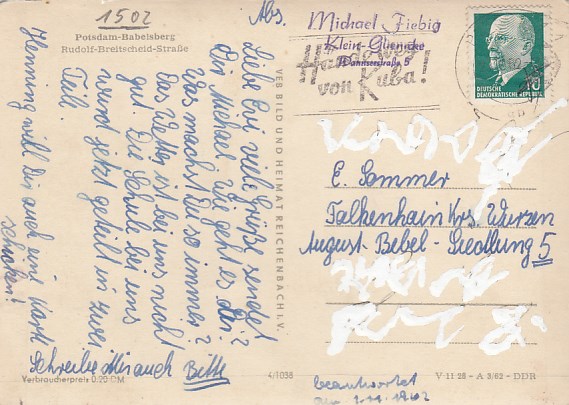 1502
Potsdam-Babelsberg
Rudolf-Breitscheid-Straße
Abs.
Michael Fiebig
Klein-Glienicke
Wannseestraße 5
Hände weg
von Kuba!
DEUTSCHE
DEMOKRATISCHE REPUBLIK
10
Liebe Evi, viele Grüße sendet
Dir Michael. Wie geht es dir?
Was machst Du so immer?
Das Wetter ist bei uns nicht
gut. Die Schule bei uns
wird jetzt geteilt in zwei
Teile.
Henning will dir auch eine Karte
schicken!
Schreibe Mir auch Bitte
VEB BILD UND HEIMAT REICHENBACH I. V.
E. Sommer
Falkenhain Krs. Wurzen
August-Bebel-Siedlung 5
Verbraucherpreis 0,20 DM
4/1038
V 11 28 - A 3/62 - DDR
beantwortet
1962